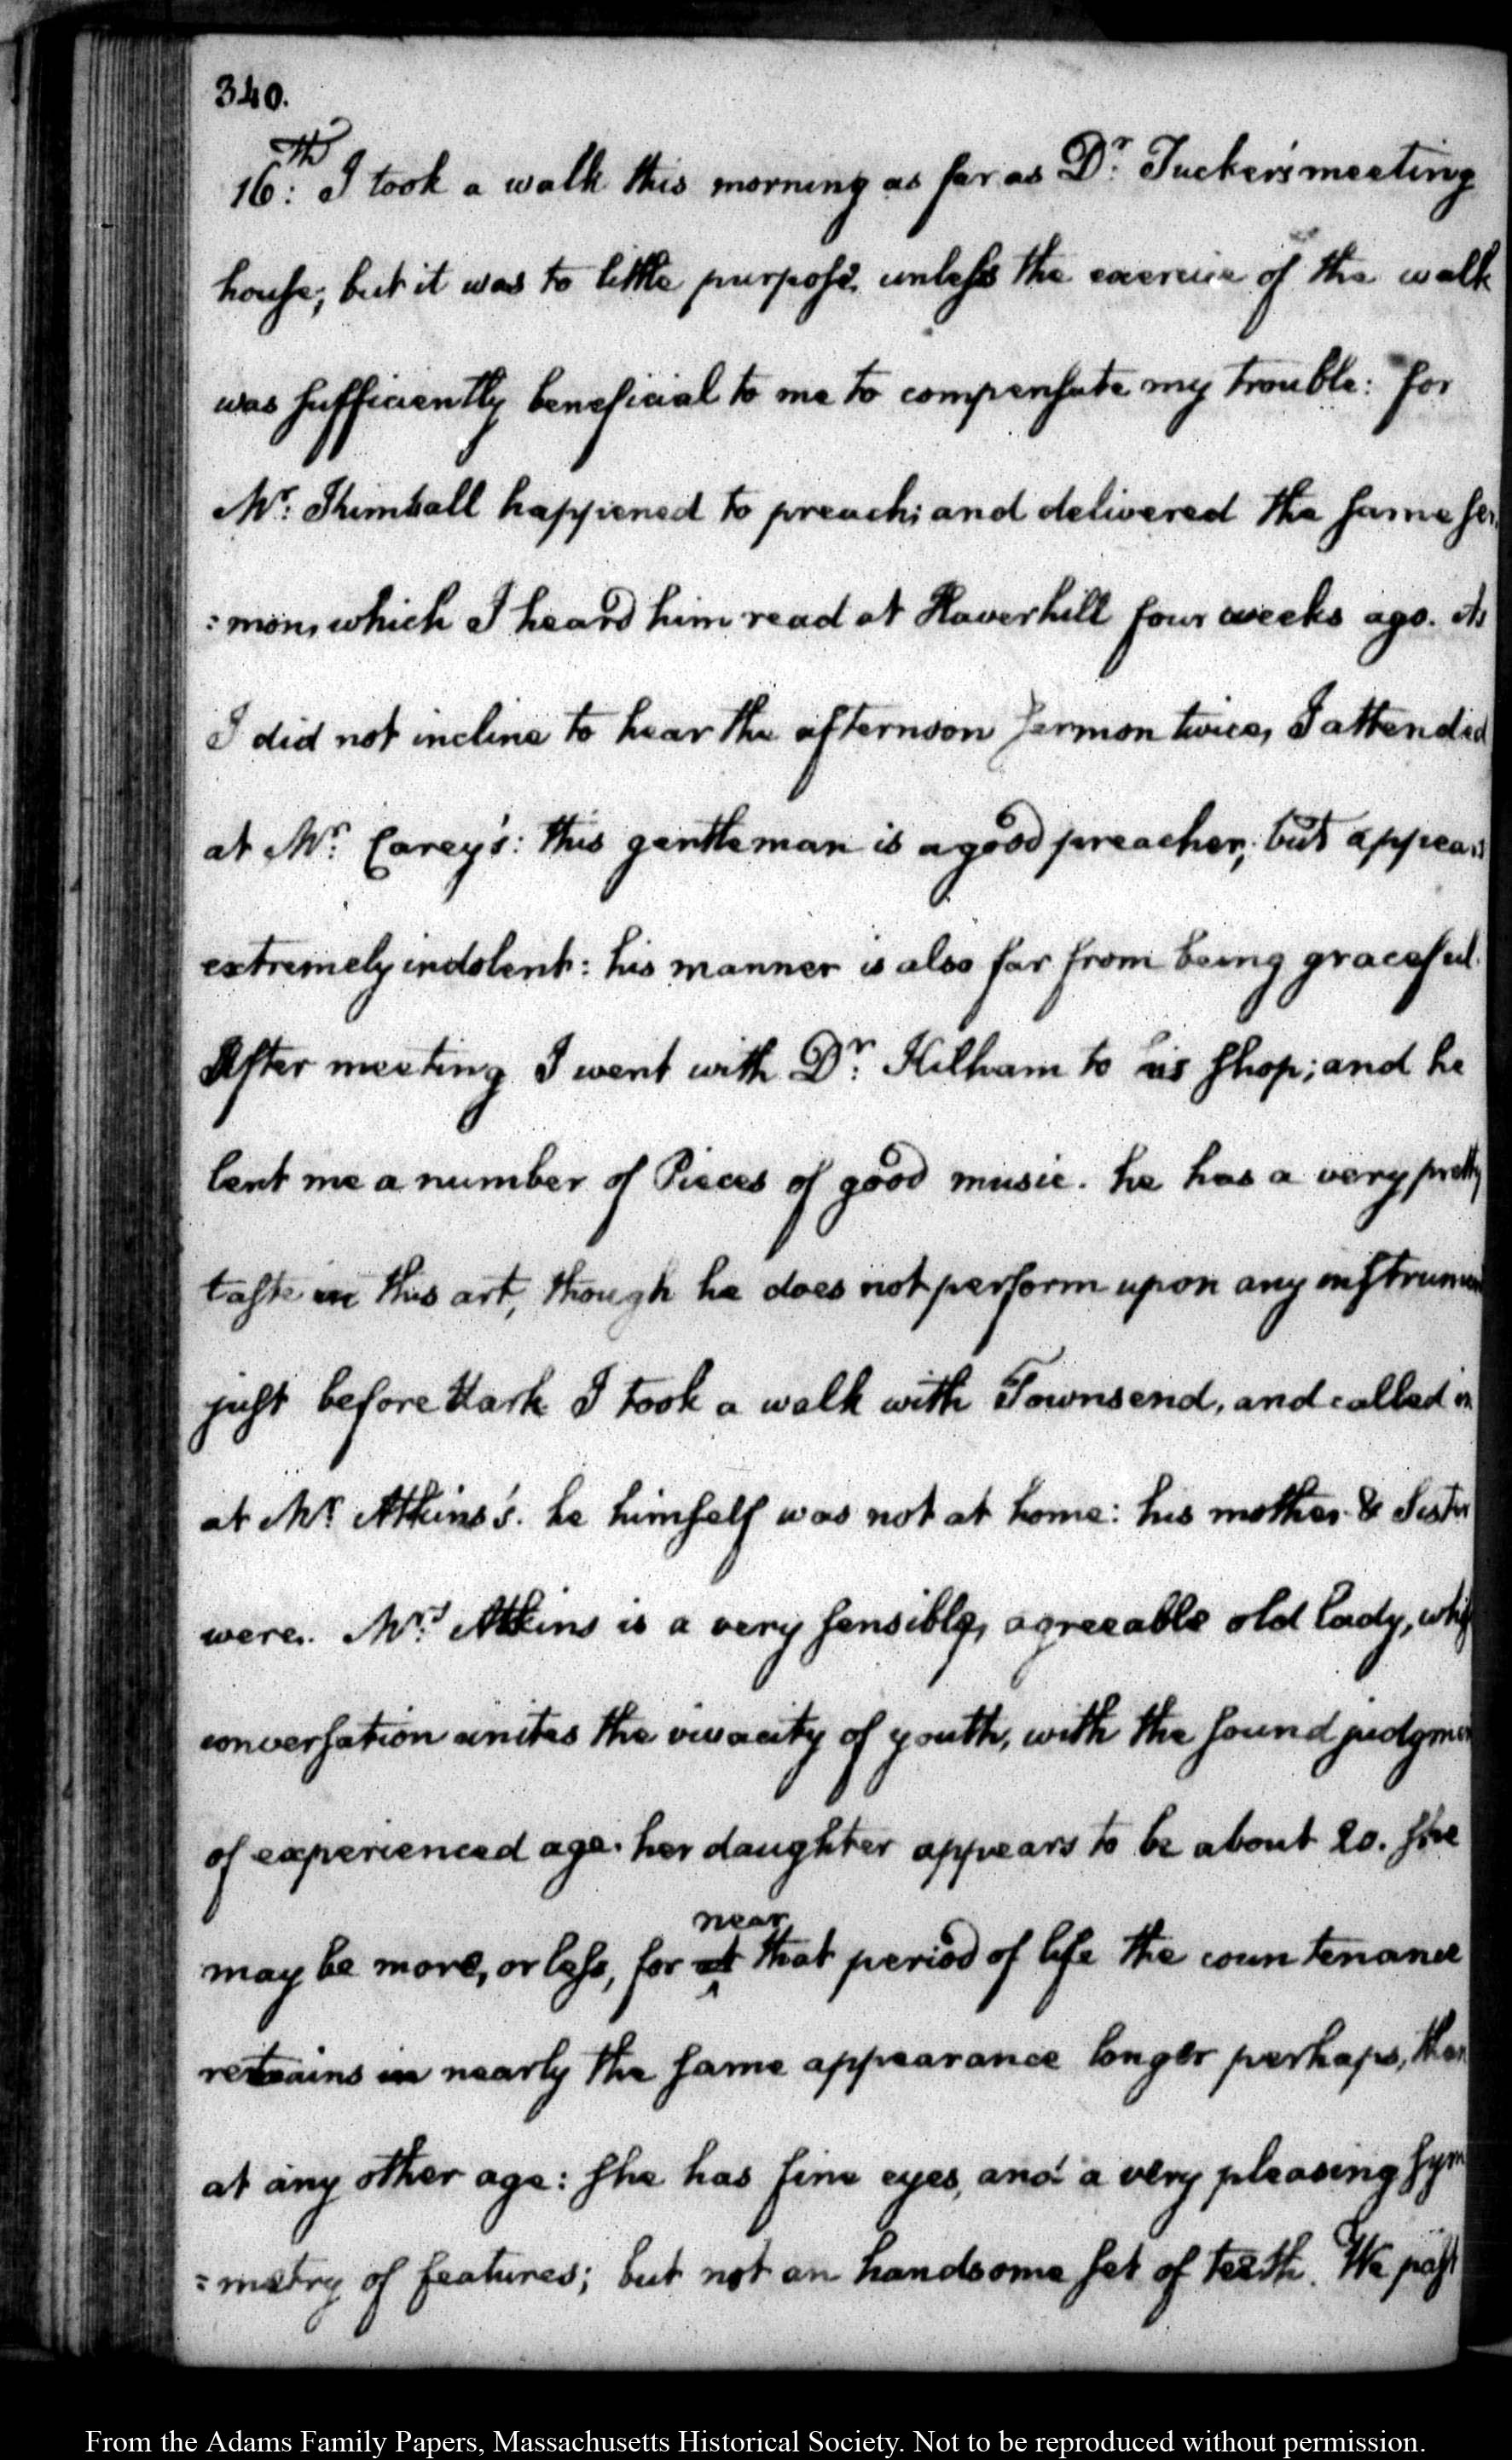 340.
16:th I took a walk this morning as far as Dr: Tucker's meeting
house; but it was to little purpose, unless the exercise of the walk
was sufficiently beneficial to me to compensate my trouble: for
Mr: Kimball happened to preach; and delivered the same ser
=mon, which I heard him read at Haverhill four weeks ago. As
I did not incline to hear the afternoon sermon twice, I attended
at Mr: Carey's: this gentleman is a good preacher; but appears
extremely indolent: his manner is also far from being graceful.
After meeting I went with Dr: Kilham to his shop; and he
lent me a number of Pieces of good music. he has a very pretty
taste in this art, though he does not perform upon any instrumen
just before dark I took a walk with Townsend, and called in
at Mr: Atkins's. he himself was not at home: his mother & Sister
were. Mrs: Atkins is a very sensible, agreeable old lady, whose
conversation unites the vivacity of youth, with the sound judgmen
of experienced age. her daughter appears to be about 20. she
near
may be more, or less, for at that period of life the countenance
retains in nearly the same appearance longer perhaps, than
at any other age: she has fine eyes, and a very pleasing sym
=metry of features; but not an handsome set of teeth. We past
From the Adams Family Papers, Massachusetts Historical Society. Not to be reproduced without permission.